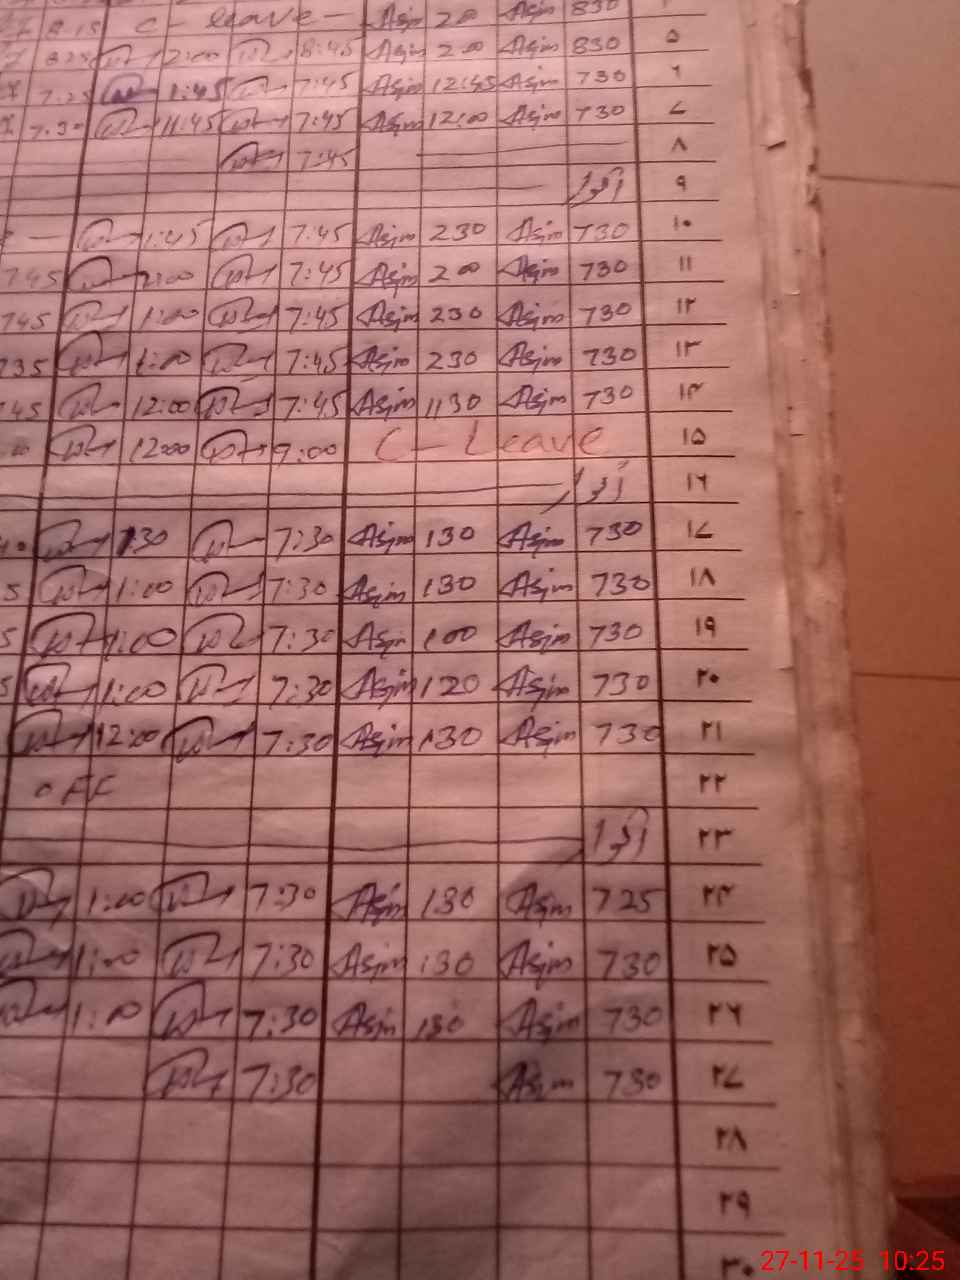 8:15 C - leave - Asim 2 00 Asim 830
2:00 8:45 Asim 2 00 Asim 830 ۵
7:25 1:45 7:45 Asim 12:45 Asim 730 ۶
7.30 11:45 7:45 Asim 12:00 Asim 730 ۷
7:45 ۸
اتوار ۹
1:45 7:45 Asim 230 Asim 730 ۱۰
745 2:00 7:45 Asim 2 00 Asim 730 ۱۱
745 1:00 7:45 Asim 230 Asim 730 ۱۲
735 1:00 7:45 Asim 230 Asim 730 ۱۳
45 12:00 7:45 Asim 1130 Asim 730 ۱۴
00 12:00 9:00 C - Leave ۱۵
اتوار ۱۶
130 7:30 Asim 130 Asim 730 ۱۷
5 1:00 7:30 Asim 130 Asim 730 ۱۸
5 1:00 7:30 Asim 100 Asim 730 ۱۹
5 1:00 7:30 Asim 120 Asim 730 ۲۰
12:00 7:30 Asim 130 Asim 730 ۲۱
OFF ۲۲
اتوار ۲۳
1:00 7:30 Asim 130 Asim 725 ۲۴
1:00 7:30 Asim 130 Asim 730 ۲۵
1:00 7:30 Asim 130 Asim 730 ۲۶
7:30 Asim 730 ۲۷
۲۸
۲۹
۳۰
27-11-25 10:25